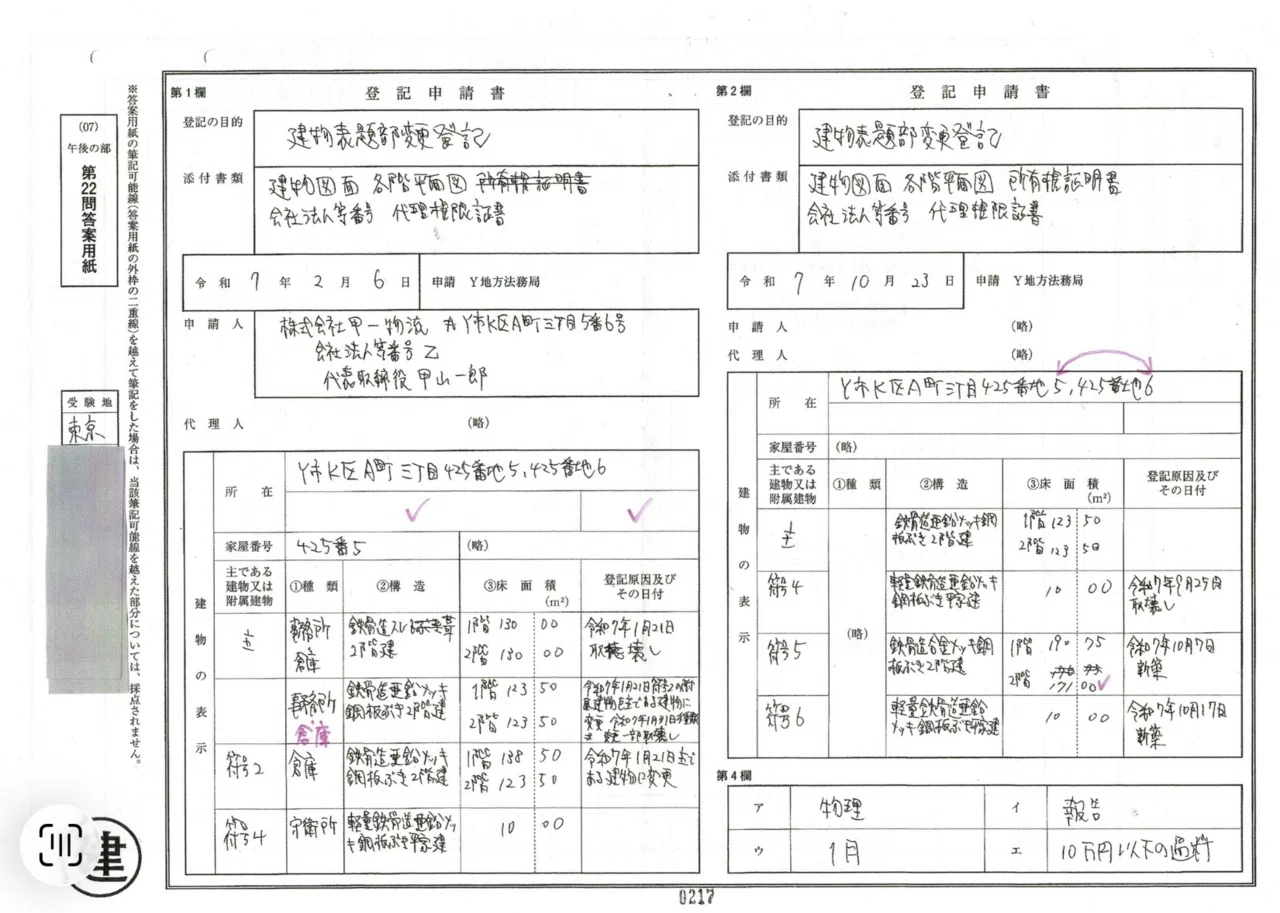 (07)
午後の部
第22問答案用紙
※答案用紙の筆記可能線(答案用紙の外枠の二重線)を越えて筆記をした場合は、当該筆記可能線を越えた部分については、採点されません。
受験地
東京
第1欄
登記申請書
登記の目的
建物表題部変更登記
添付書類
建物図面 各階平面図 所有権証明書
会社法人等番号 代理権限証書
令和 7 年 2 月 6 日 申請 Y地方法務局
申請人
株式会社甲一物流 Y市K区A町三丁目5番6号
会社法人等番号 乙
代表取締役 甲山一郎
代理人 (略)
建物の表示
所在
Y市K区A町三丁目425番地5,425番地6
家屋番号 425番5 (略)
主である建物又は附属建物 ①種類 ②構造 ③床面積(m²) 登記原因及びその日付
主 事務所 倉庫 2階建 1階 130 00 2階 130 00 令和7年1月21日 取壊し
事務所 倉庫 鉄骨造亜鉛メッキ鋼板ぶき2階建 1階 123 50 2階 123 50 令和7年1月21日
符号2 倉庫 鉄骨造亜鉛メッキ鋼板ぶき2階建 1階 138 50 2階 123 50 令和7年1月21日主である建物に変更
符号4 守衛所 軽量鉄骨造亜鉛メッキ鋼板ぶき平家建 10 00
第2欄
登記申請書
登記の目的
建物表題部変更登記
添付書類
建物図面 各階平面図 所有権証明書
会社法人等番号 代理権限証書
令和 7 年 10 月 23 日 申請 Y地方法務局
申請人 (略)
代理人 (略)
建物の表示
所在
Y市K区A町三丁目425番地5,425番地6
家屋番号 (略)
主である建物又は附属建物 ①種類 ②構造 ③床面積(m²) 登記原因及びその日付
(略)
主 鉄骨造亜鉛メッキ鋼板ぶき2階建 1階 123 50 2階 123 50
符号4 軽量鉄骨造亜鉛メッキ鋼板ぶき平家建 10 00 令和7年9月25日 取壊し
符号5 鉄骨造合金メッキ鋼板ぶき2階建 1階 190 75 2階 171 00 令和7年10月7日 新築
符号6 軽量鉄骨造亜鉛メッキ鋼板ぶき平家建 10 00 令和7年10月17日 新築
第4欄
ア 物理 イ 報告
ウ 1月 エ 10万円以下の過料
建
0217